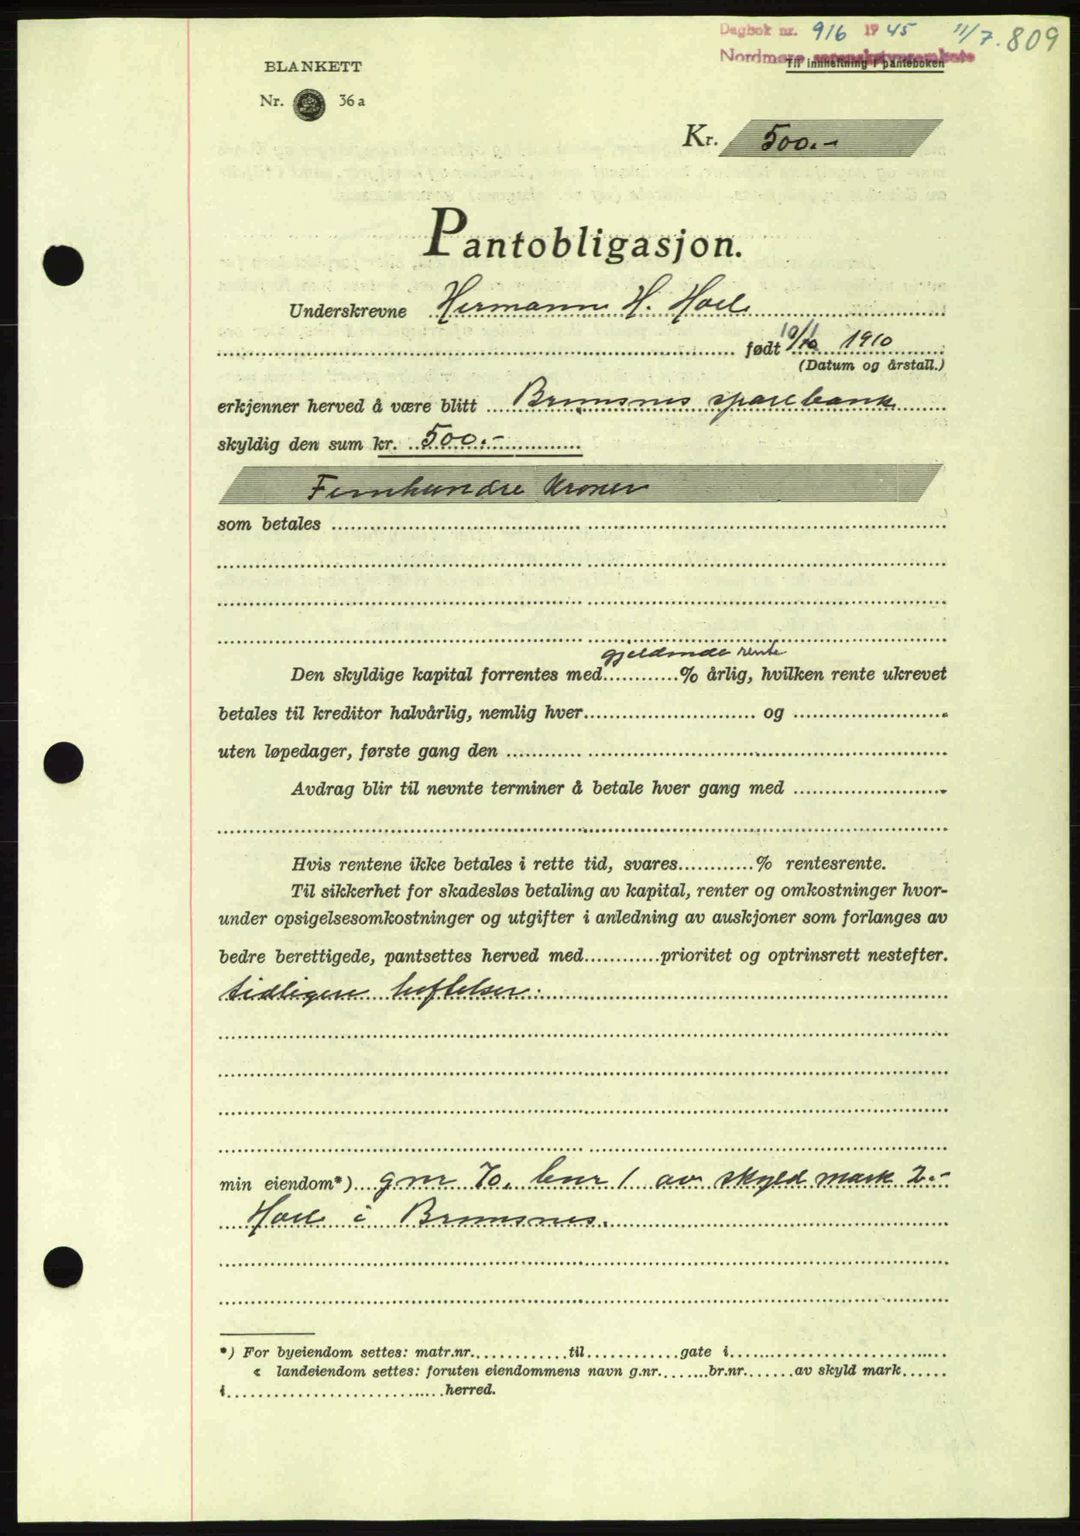 Dagbok nr. 916 1945 11/7. 809
Nordmøre sorenskriverembete
Til innheftning i panteboken
BLANKETT
Nr. 36 a
Kr. 500.-
Pantobligasjon.
Underskrevne Hermann H. Hoel
født 10/ 1910
(Datum og årstall.)
erkjenner herved å være blitt Bremsnes sparebank
skyldig den sum kr. 500.-
Femhundre kroner
som betales
gjeldende rente
Den skyldige kapital forrentes med % årlig, hvilken rente ukrevet
betales til kreditor halvårlig, nemlig hver og
uten løpedager, første gang den
Avdrag blir til nevnte terminer å betale hver gang med
Hvis rentene ikke betales i rette tid, svares % rentesrente.
Til sikkerhet for skadesløs betaling av kapital, renter og omkostninger hvor-
under opsigelsesomkostninger og utgifter i anledning av auskjoner som forlanges av
bedre berettigede, pantsettes herved med prioritet og optrinsrett nestefter.
tidligere heftelser.
min eiendom*) gnr 70. bnr 1 av skyld mark 2.-
Hoel i Bremsnes.
*) For byeiendom settes: matr.nr. til gate i
« landeiendom settes: foruten eiendommens navn g.nr. br.nr. av skyld mark
i herred.